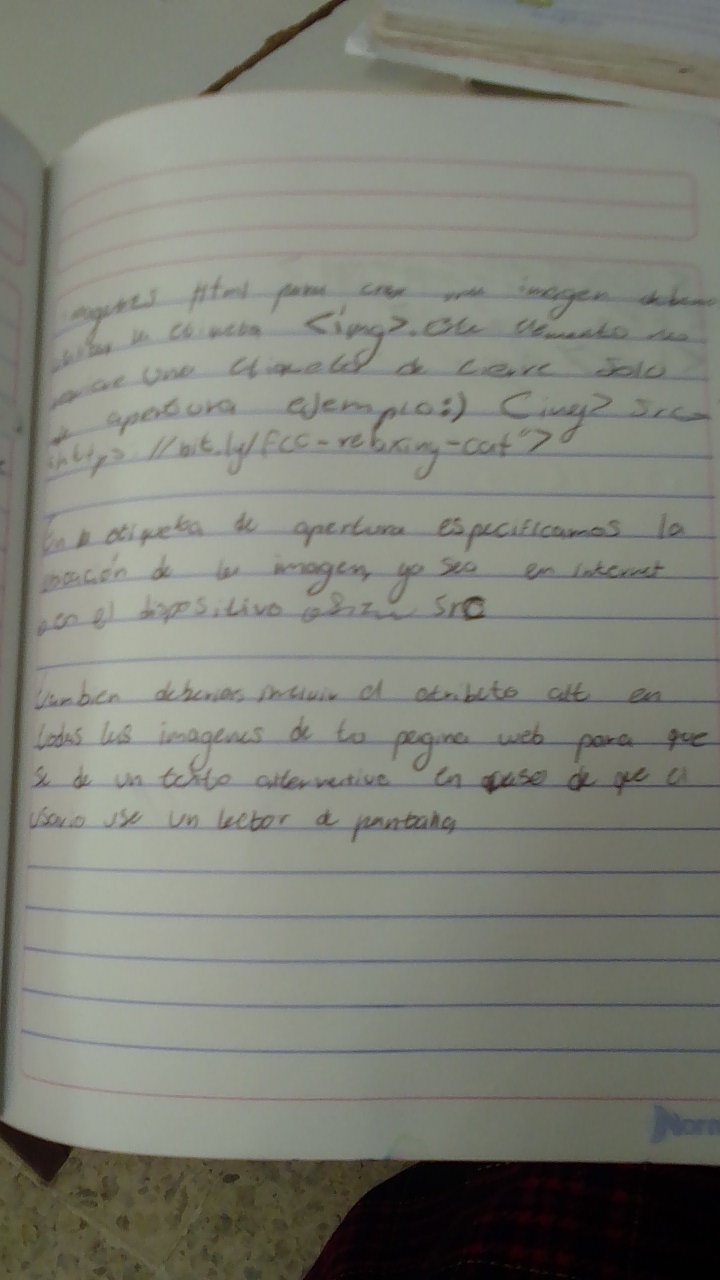 imagenes Html para crear una imagen debemos
utilizar la etiqueta <img>. Este elemento no
requiere una etiqueta de cierre solo
de apertura ejemplo:) <img> src=
"http://bit.ly/fcc-relaxing-cat">
En la etiqueta de apertura especificamos la
ubicación de la imagen, ya sea en internet
o en el dispositivo src
tambien deberias incluir el atributo alt en
todas las imagenes de tu pagina web para que
se de un texto alternativo en caso de que el
usario use un lector de pantalla
Norma